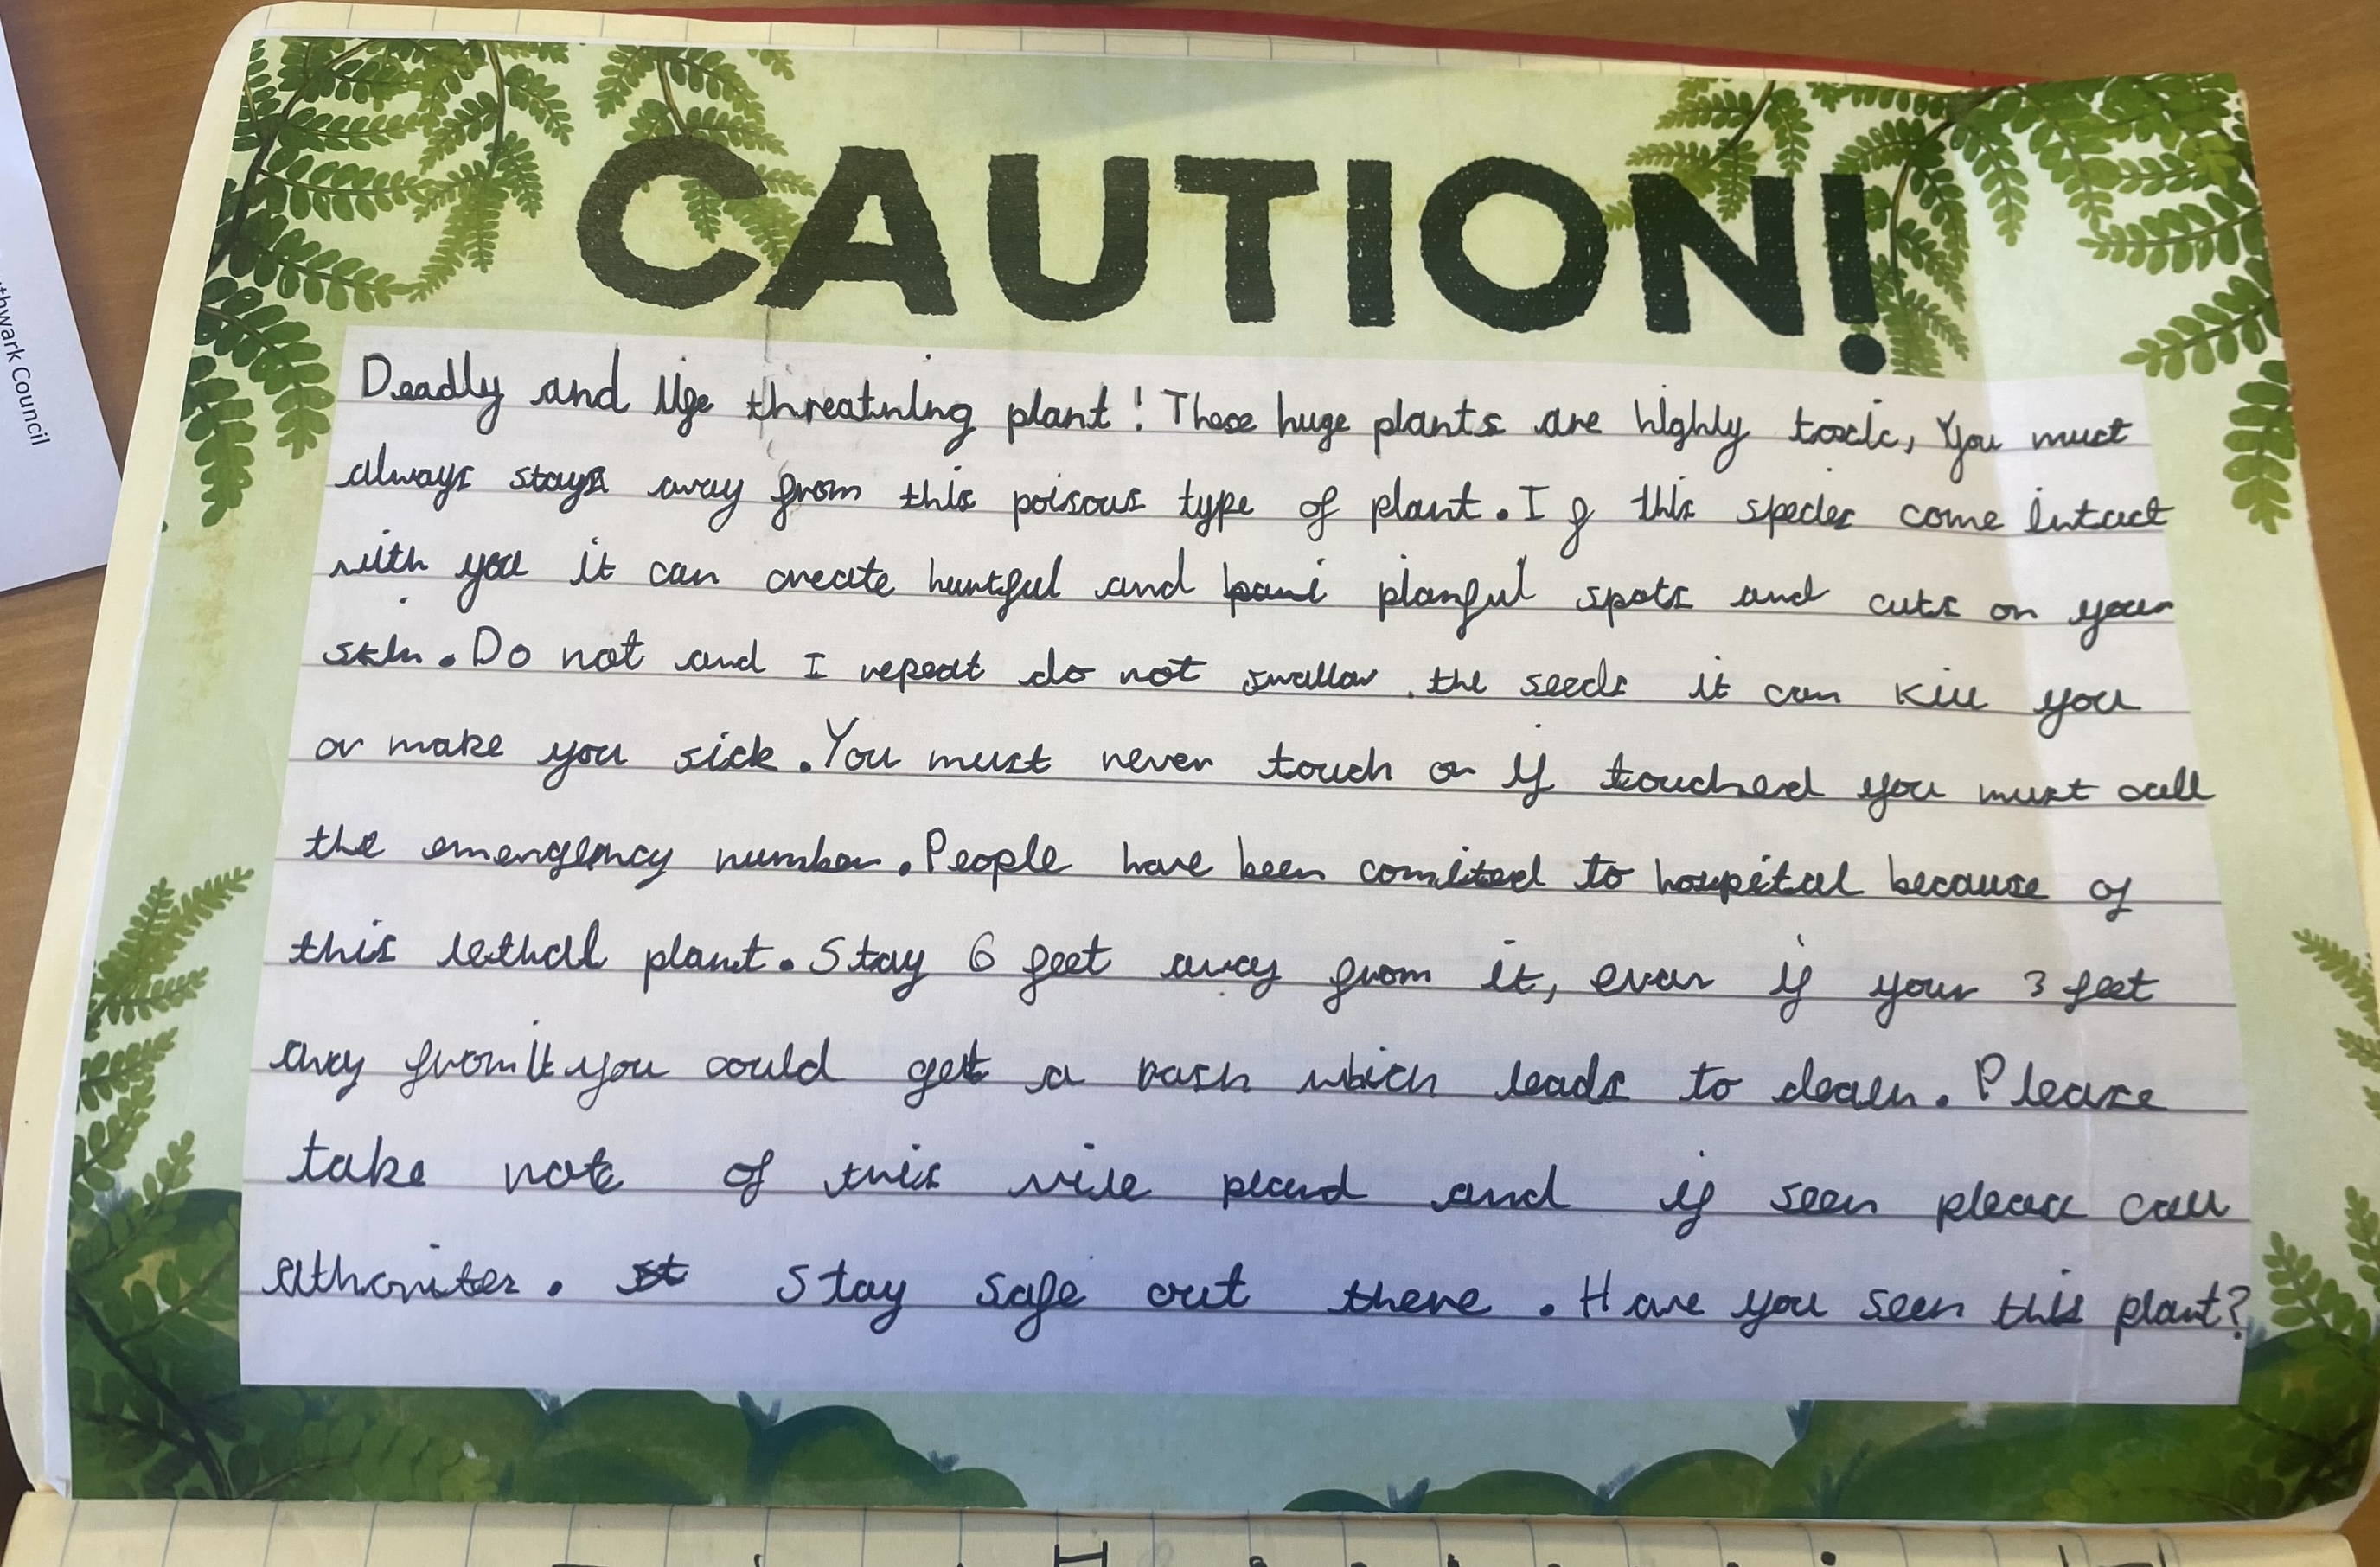 thwark Council
CAUTION!
Deadly and life threatning plant! These huge plants are highly toxic, You must
always stays away from this poisous type of plant. If this species come intact
with you it can create hurtful and planful spots and cuts on your
skin. Do not and I repeat do not swallow the seeds it can kill you
or make you sick. You must never touch or if touched you must call
the emergency number. People have been comited to hospital because of
this lethal plant. Stay 6 feet away from it, even if your 3 feet
away from it you could get a rash which leads to death. Please
take note of this vile pland and if seen please call
athorites. Stay safe out there. Have you seen this plant?